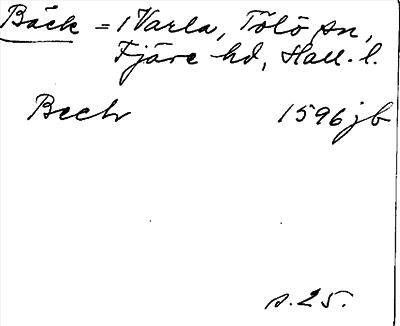 Bäck = i Varla, Tölö sn,
Fjäre hd, Hall. l.
Bech 1596 jb
s. 25.